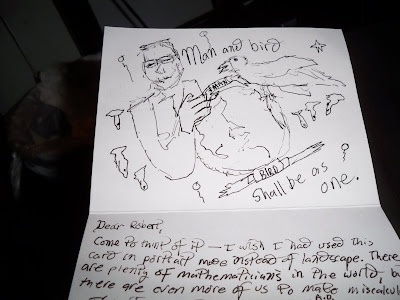 Man and bird
MAN
BIRD
shall be as
one.
Dear Robert,
Come to think of it — I wish I had used this
card in portrait mode instead of landscape. There
are plenty of mathematicians in the world, but
there are even more of us to make miscalcul